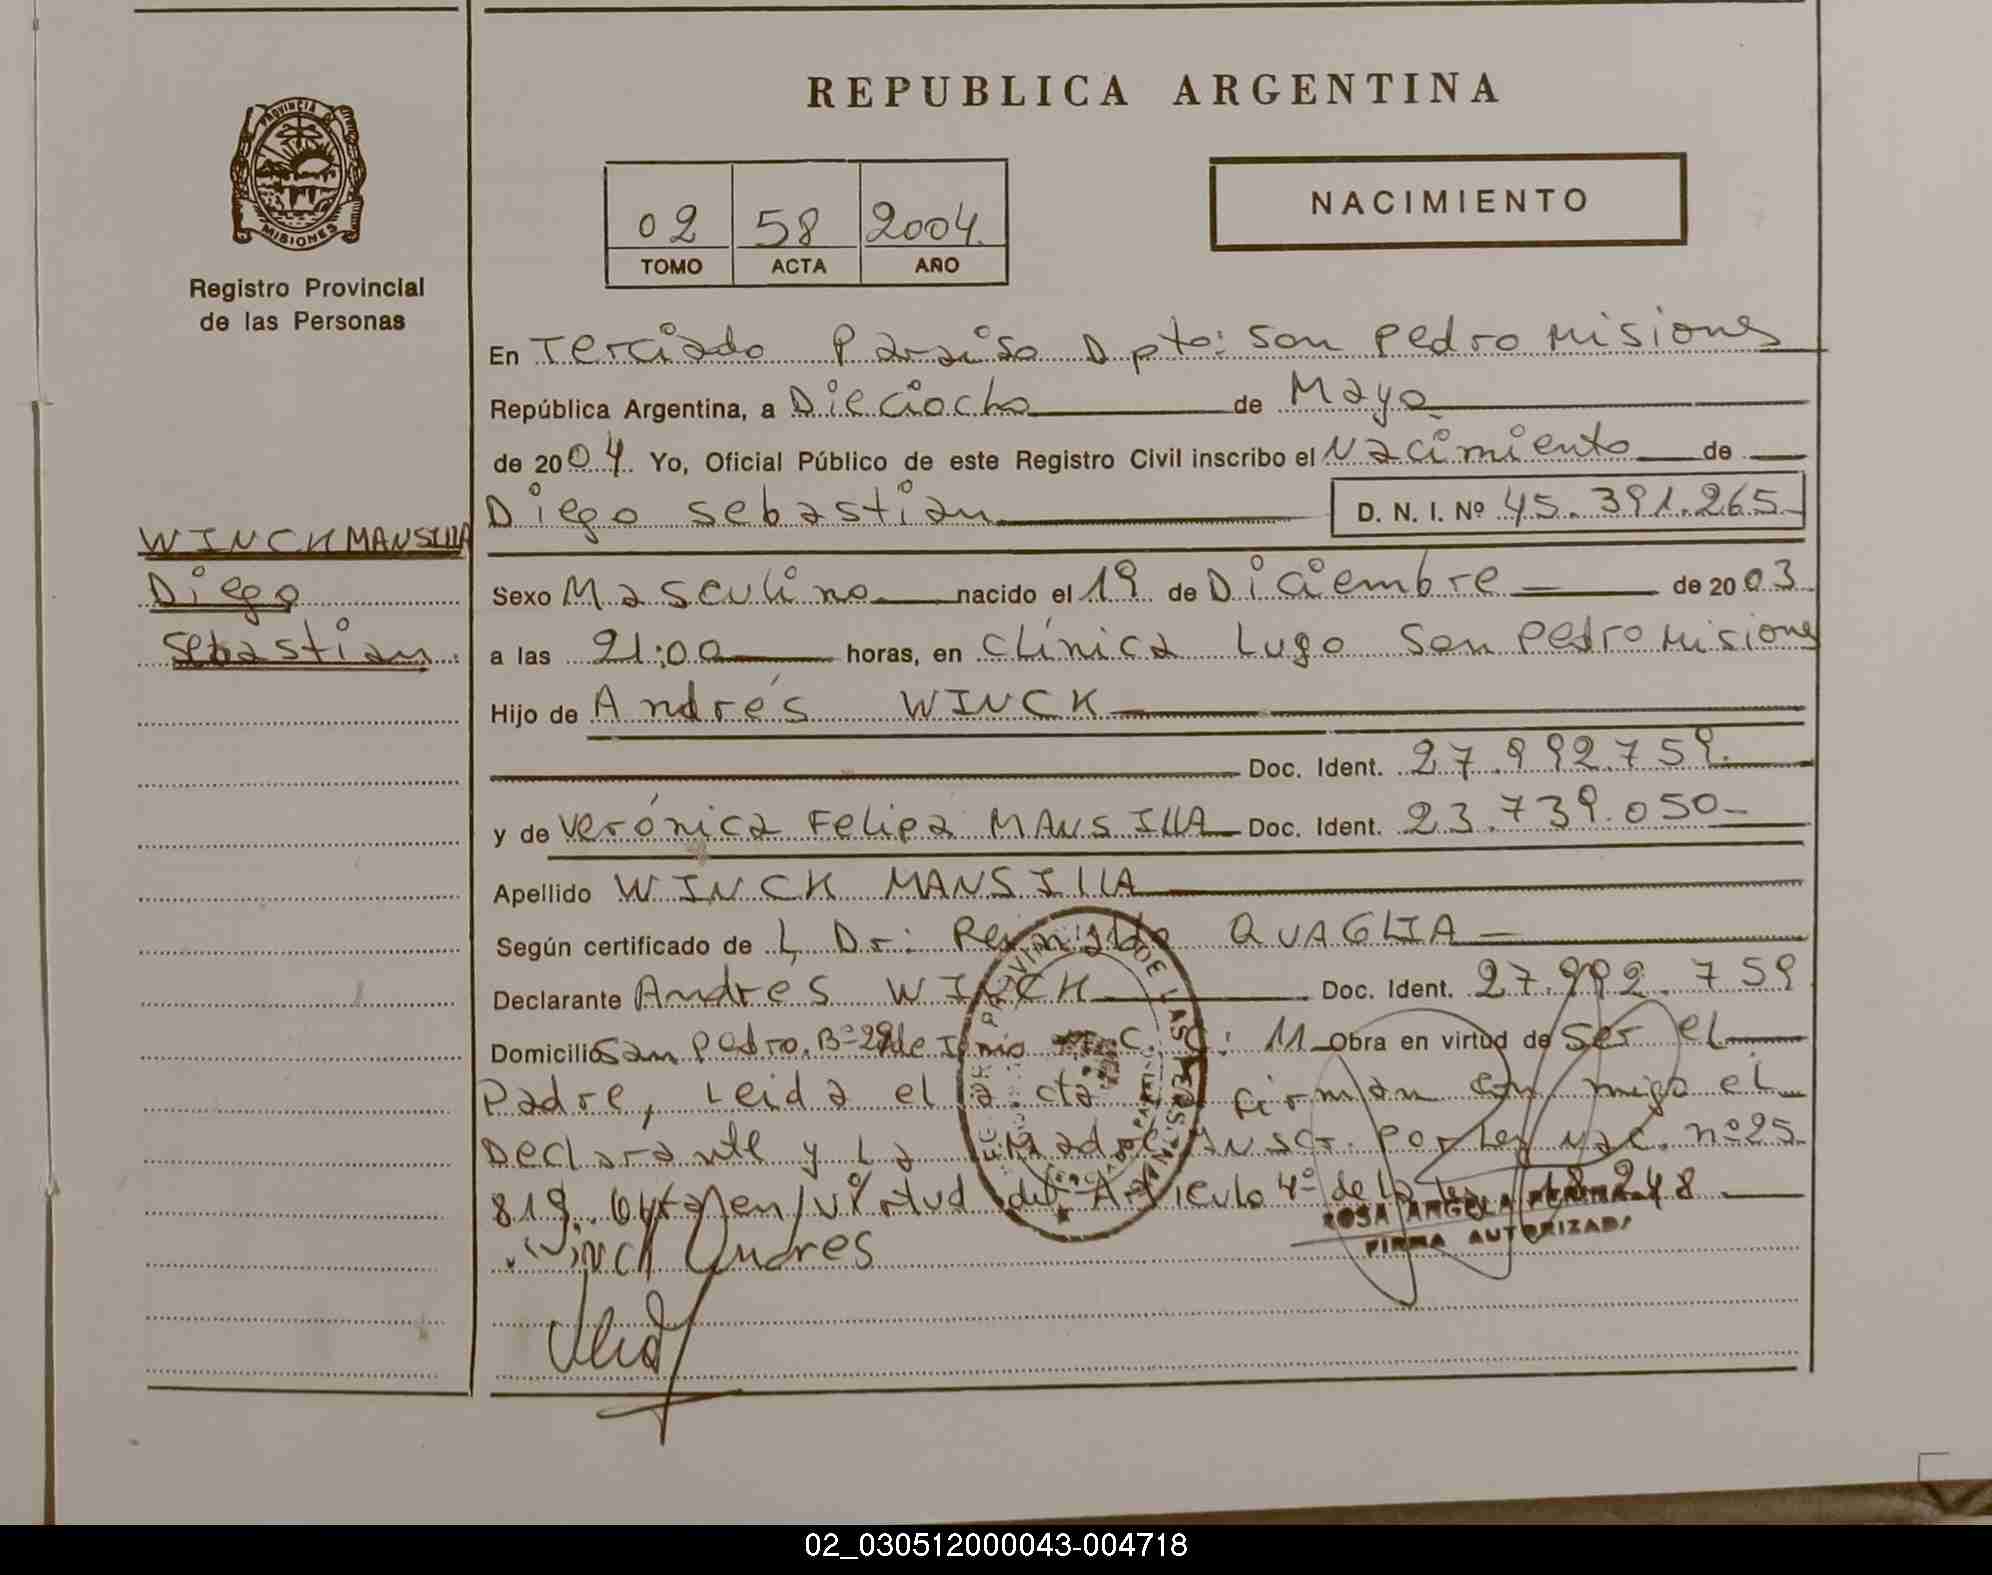 REPUBLICA ARGENTINA
PROVINCIA DE
MISIONES
Registro Provincial
de las Personas
02 58 2004
TOMO ACTA AÑO
NACIMIENTO
En Terciado Paraiso Dpto: San Pedro Misiones
República Argentina, a Dieciocho de Mayo
de 2004. Yo, Oficial Público de este Registro Civil inscribo el Nacimiento de
Diego Sebastian D. N. I. Nº 45.391.265
WINCK MANSILLA
Diego
Sebastian
Sexo Masculino nacido el 19 de Diciembre de 2003
a las 21:00 horas, en Clínica Lugo San Pedro Misiones
Hijo de Andrés WINCK
Doc. Ident. 27.992.759.
y de Verónica Felipa MANSILLA Doc. Ident. 23.739.050
Apellido WINCK MANSILLA
Según certificado de L, Dr: QUAGLIA
Declarante Andrés WINCK Doc. Ident. 27.992.759
Domicilio San Pedro. Bº 29 de C: 11 Obra en virtud de Ser el
Padre, Leida el acta firman con migo el
Declarante y La Madre Inscr. Por Ley Nac. nº 25
819. en virtud del Articulo 4º de La Ley 18.248
Winck Andres
ROSA ANGELA
FIRMA AUTORIZADA
02_030512000043-004718